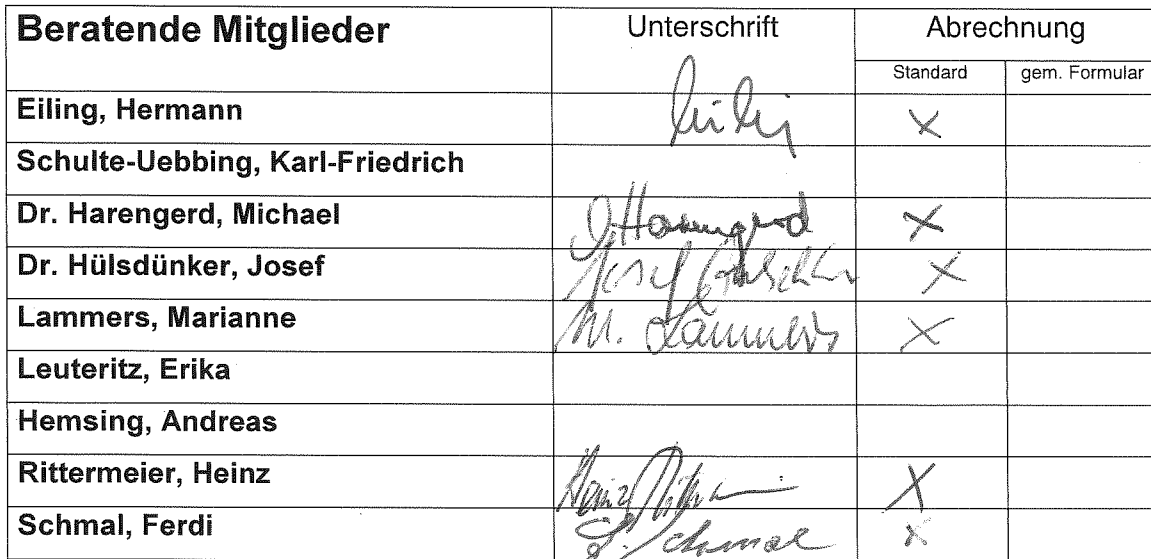 Beratende Mitglieder Unterschrift Abrechnung
Standard gem. Formular
Eiling, Hermann X
Schulte-Uebbing, Karl-Friedrich
Dr. Harengerd, Michael Harengerd X
Dr. Hülsdünker, Josef Josef X
Lammers, Marianne M. Lammers X
Leuteritz, Erika
Hemsing, Andreas
Rittermeier, Heinz Heinz X
Schmal, Ferdi F. Schmal X